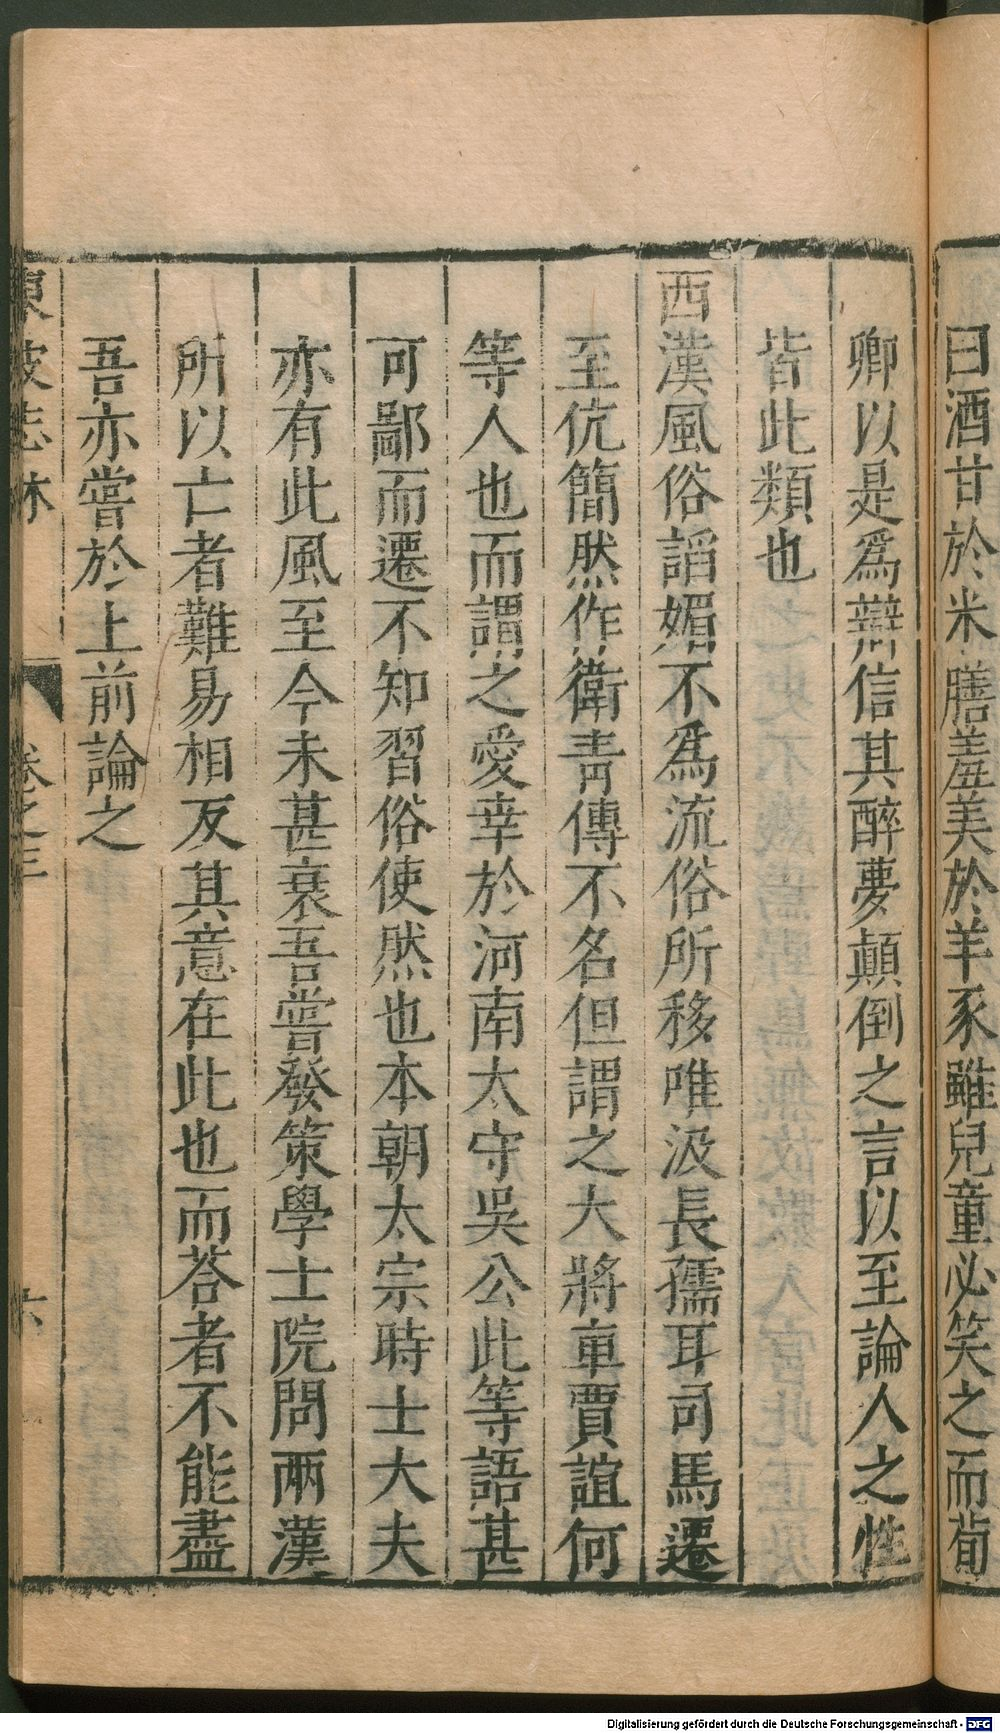 曰酒甘於米膳羞美於羊豕雖兒童必笑之而荀
卿以是爲辯信其醉夢顛倒之言以至論人之性
皆此類也
西漢風俗謟媚不爲流俗所移唯汲長孺耳司馬遷
至伉簡然作衛青傳不名但謂之大將軍賈誼何
等人也而謂之愛幸於河南太守吳公此等語甚
可鄙而遷不知習俗使然也本朝太宗時士大夫
亦有此風至今未甚衰吾嘗發策學士院問兩漢
所以亡者難易相反其意在此也而荅者不能盡
吾亦嘗於上前論之
東坡志林 卷之三 六
Digitalisierung gefördert durch die Deutsche Forschungsgemeinschaft - DFG